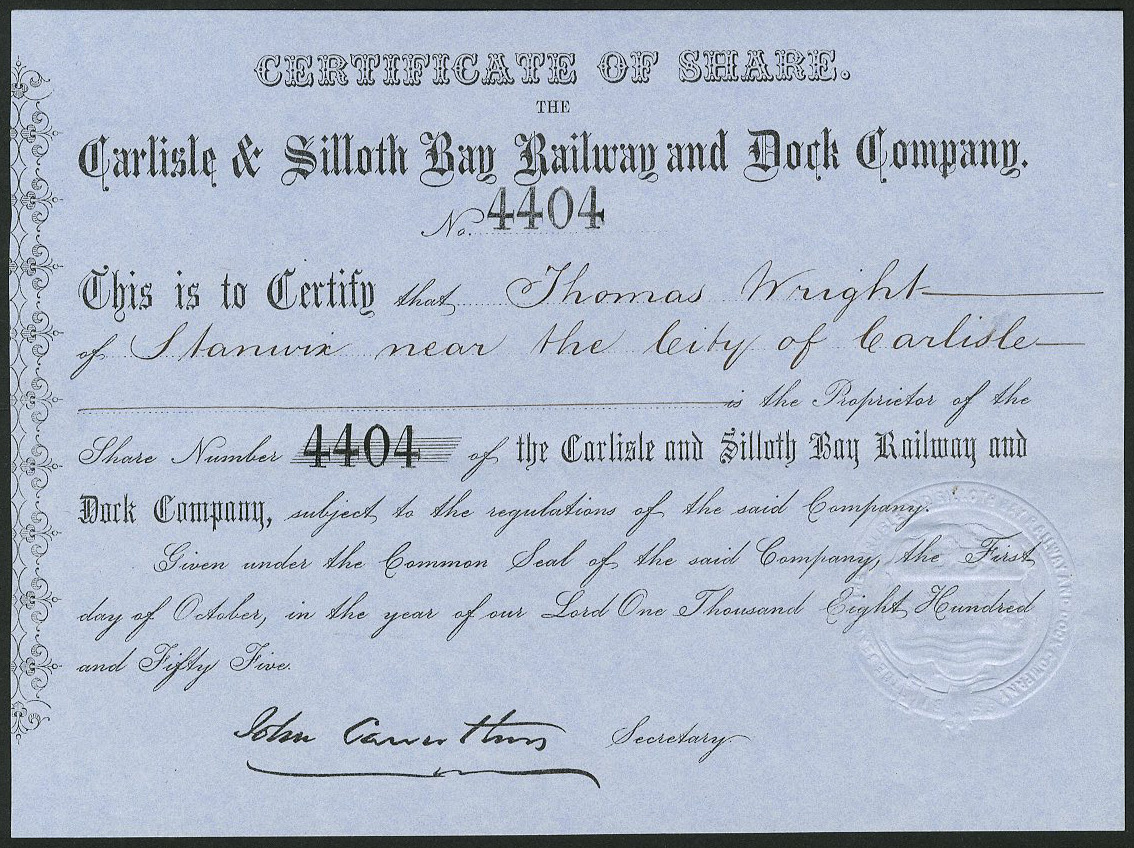 CERTIFICATE OF SHARE.
THE
Carlisle & Silloth Bay Railway and Dock Company.
No. 4404
This is to Certify that Thomas Wright
of Stanwix near the City of Carlisle
is the Proprietor of the
Share Number 4404 of the Carlisle and Silloth Bay Railway and
Dock Company, subject to the regulations of the said Company.
Given under the Common Seal of the said Company, the First
day of October, in the year of our Lord One Thousand Eight Hundred
and Fifty Five.
John Carruthers Secretary